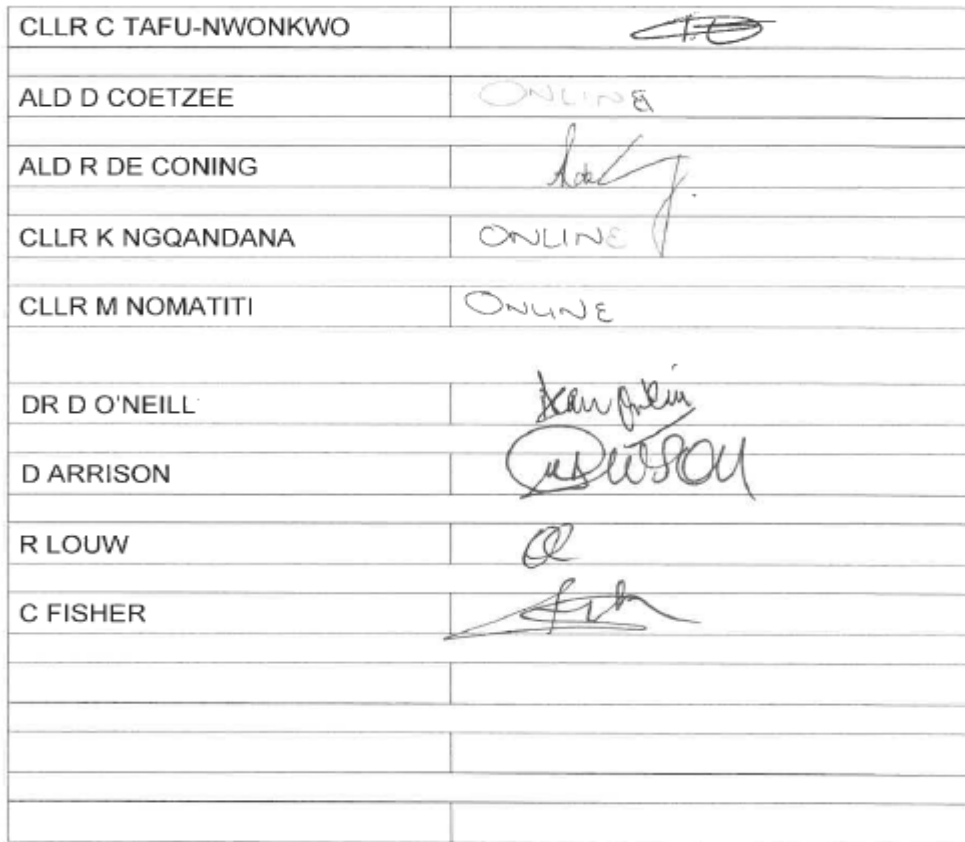 CLLR C TAFU-NWONKWO
ALD D COETZEE ONLINE
ALD R DE CONING
CLLR K NGQANDANA ONLINE
CLLR M NOMATITI ONLINE
DR D O'NEILL
D ARRISON
R LOUW
C FISHER